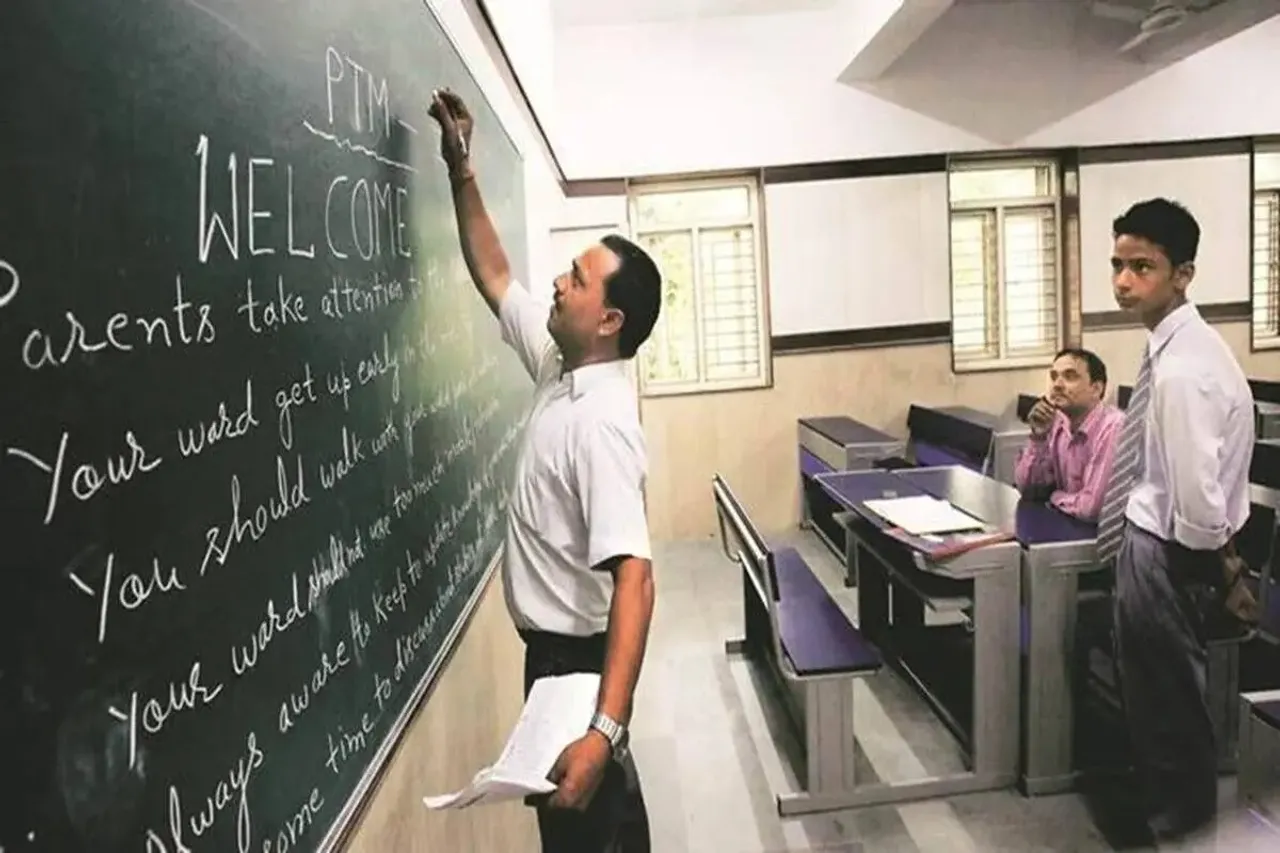 PTM
WELCOME
Parents take attention to
Your ward get up early in
You should walk with
Your ward should not use too much mobile
Always aware to keep to update knowledge of
some time to discuss